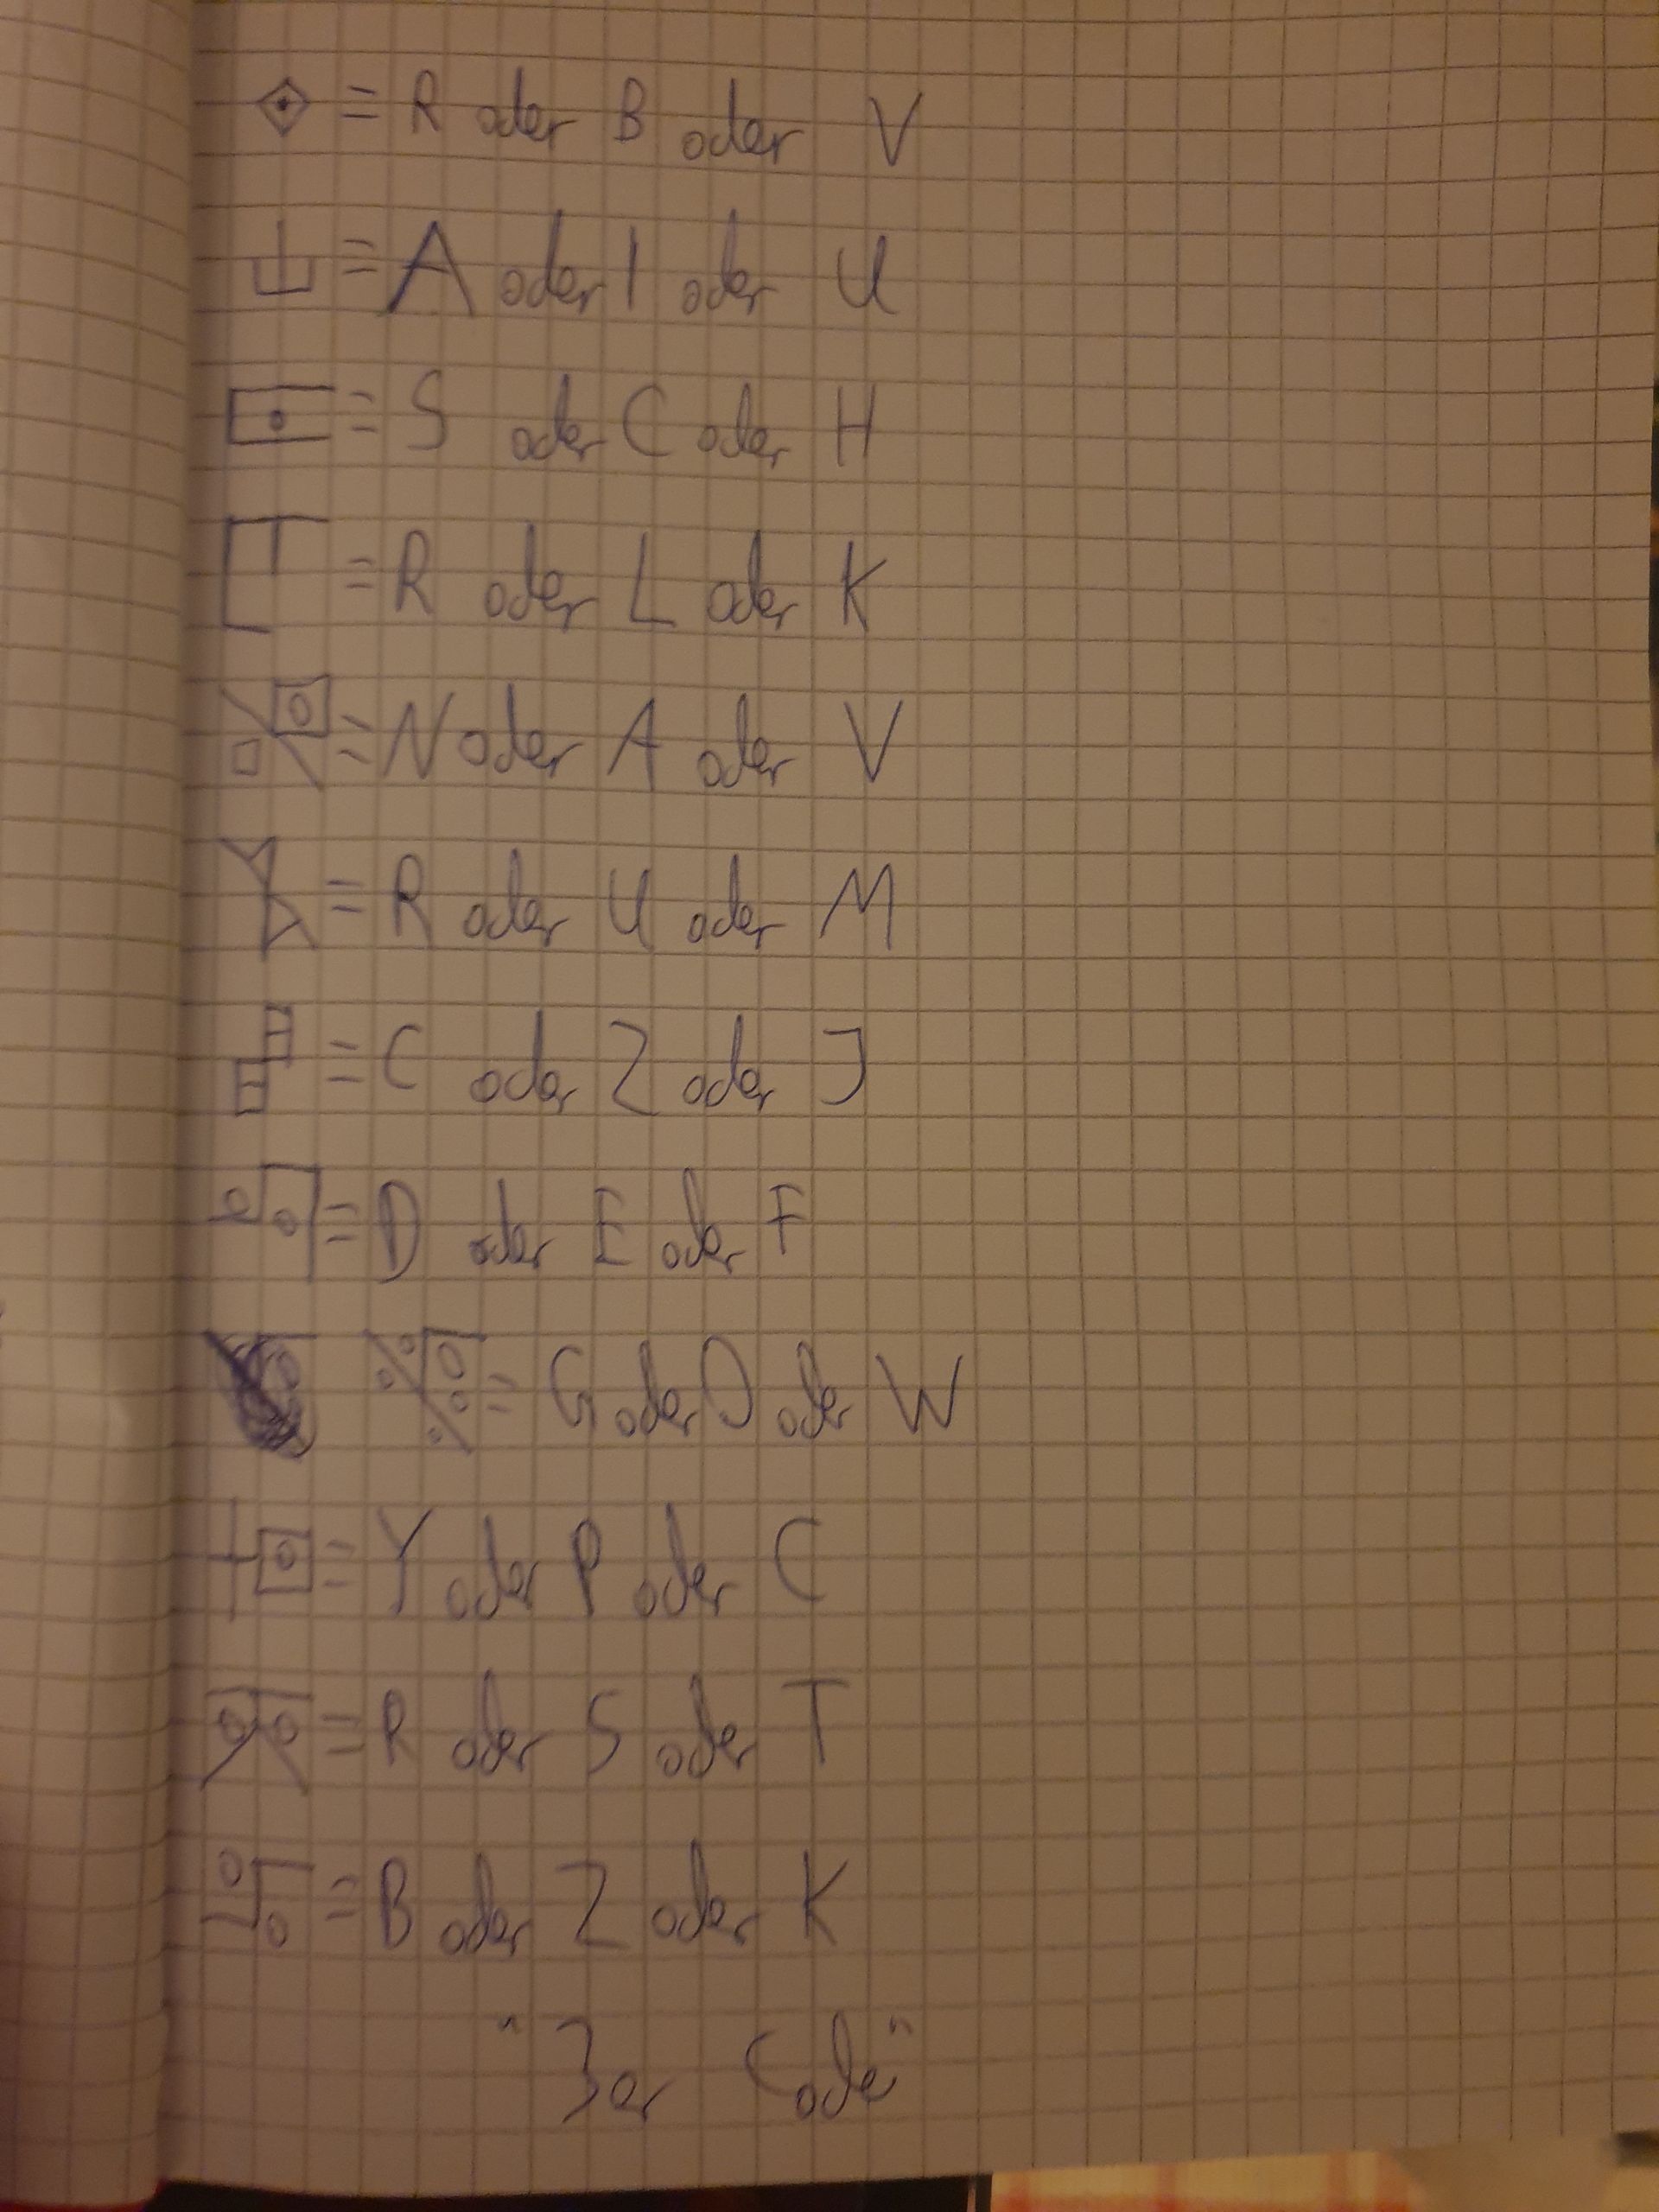 = R oder B oder V
= A oder I oder U
= S oder C oder H
= R oder L oder K
= N oder A oder V
= R oder U oder M
= C oder Z oder J
= D oder E oder F
= G oder O oder W
= Y oder P oder C
= R oder S oder T
= B oder Z oder K
"3er Code"